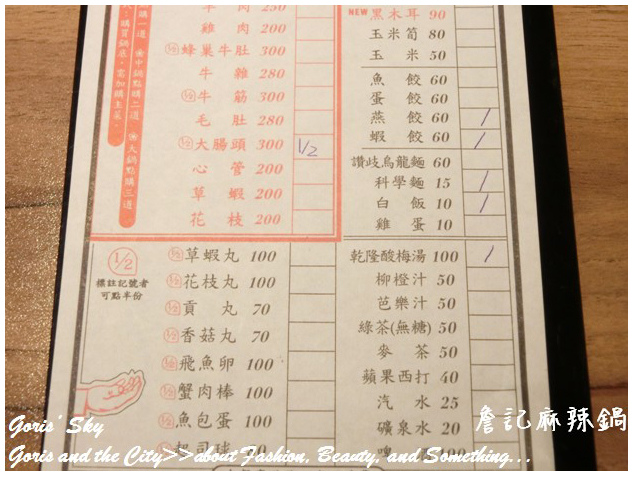 購買鍋底,需加購主菜。
購一道 ※中鍋點購二道 ※大鍋點購三道
肉 250
雞肉 200
½蜂巢牛肚 300
牛雜 280
½牛筋 300
毛肚 280
½大腸頭 300 1/2
心管 200
草蝦 200
花枝 200
1/2
標註記號者
可點半份
½草蝦丸 100
½花枝丸 100
½貢丸 70
½香菇丸 70
½飛魚卵 100
½蟹肉棒 100
½魚包蛋 100
NEW 黑木耳 90
玉米筍 80
玉米 50
魚餃 60
蛋餃 60
燕餃 60 /
蝦餃 60 /
讚歧烏龍麵 60
科學麵 15 /
白飯 10 /
雞蛋 10
乾隆酸梅湯 100 /
柳橙汁 50
芭樂汁 50
綠茶(無糖) 50
麥茶 50
蘋果西打 40
汽水 25
礦泉水 20
詹記麻辣鍋
Goris' Sky
Goris and the City>>about Fashion, Beauty, and Something...